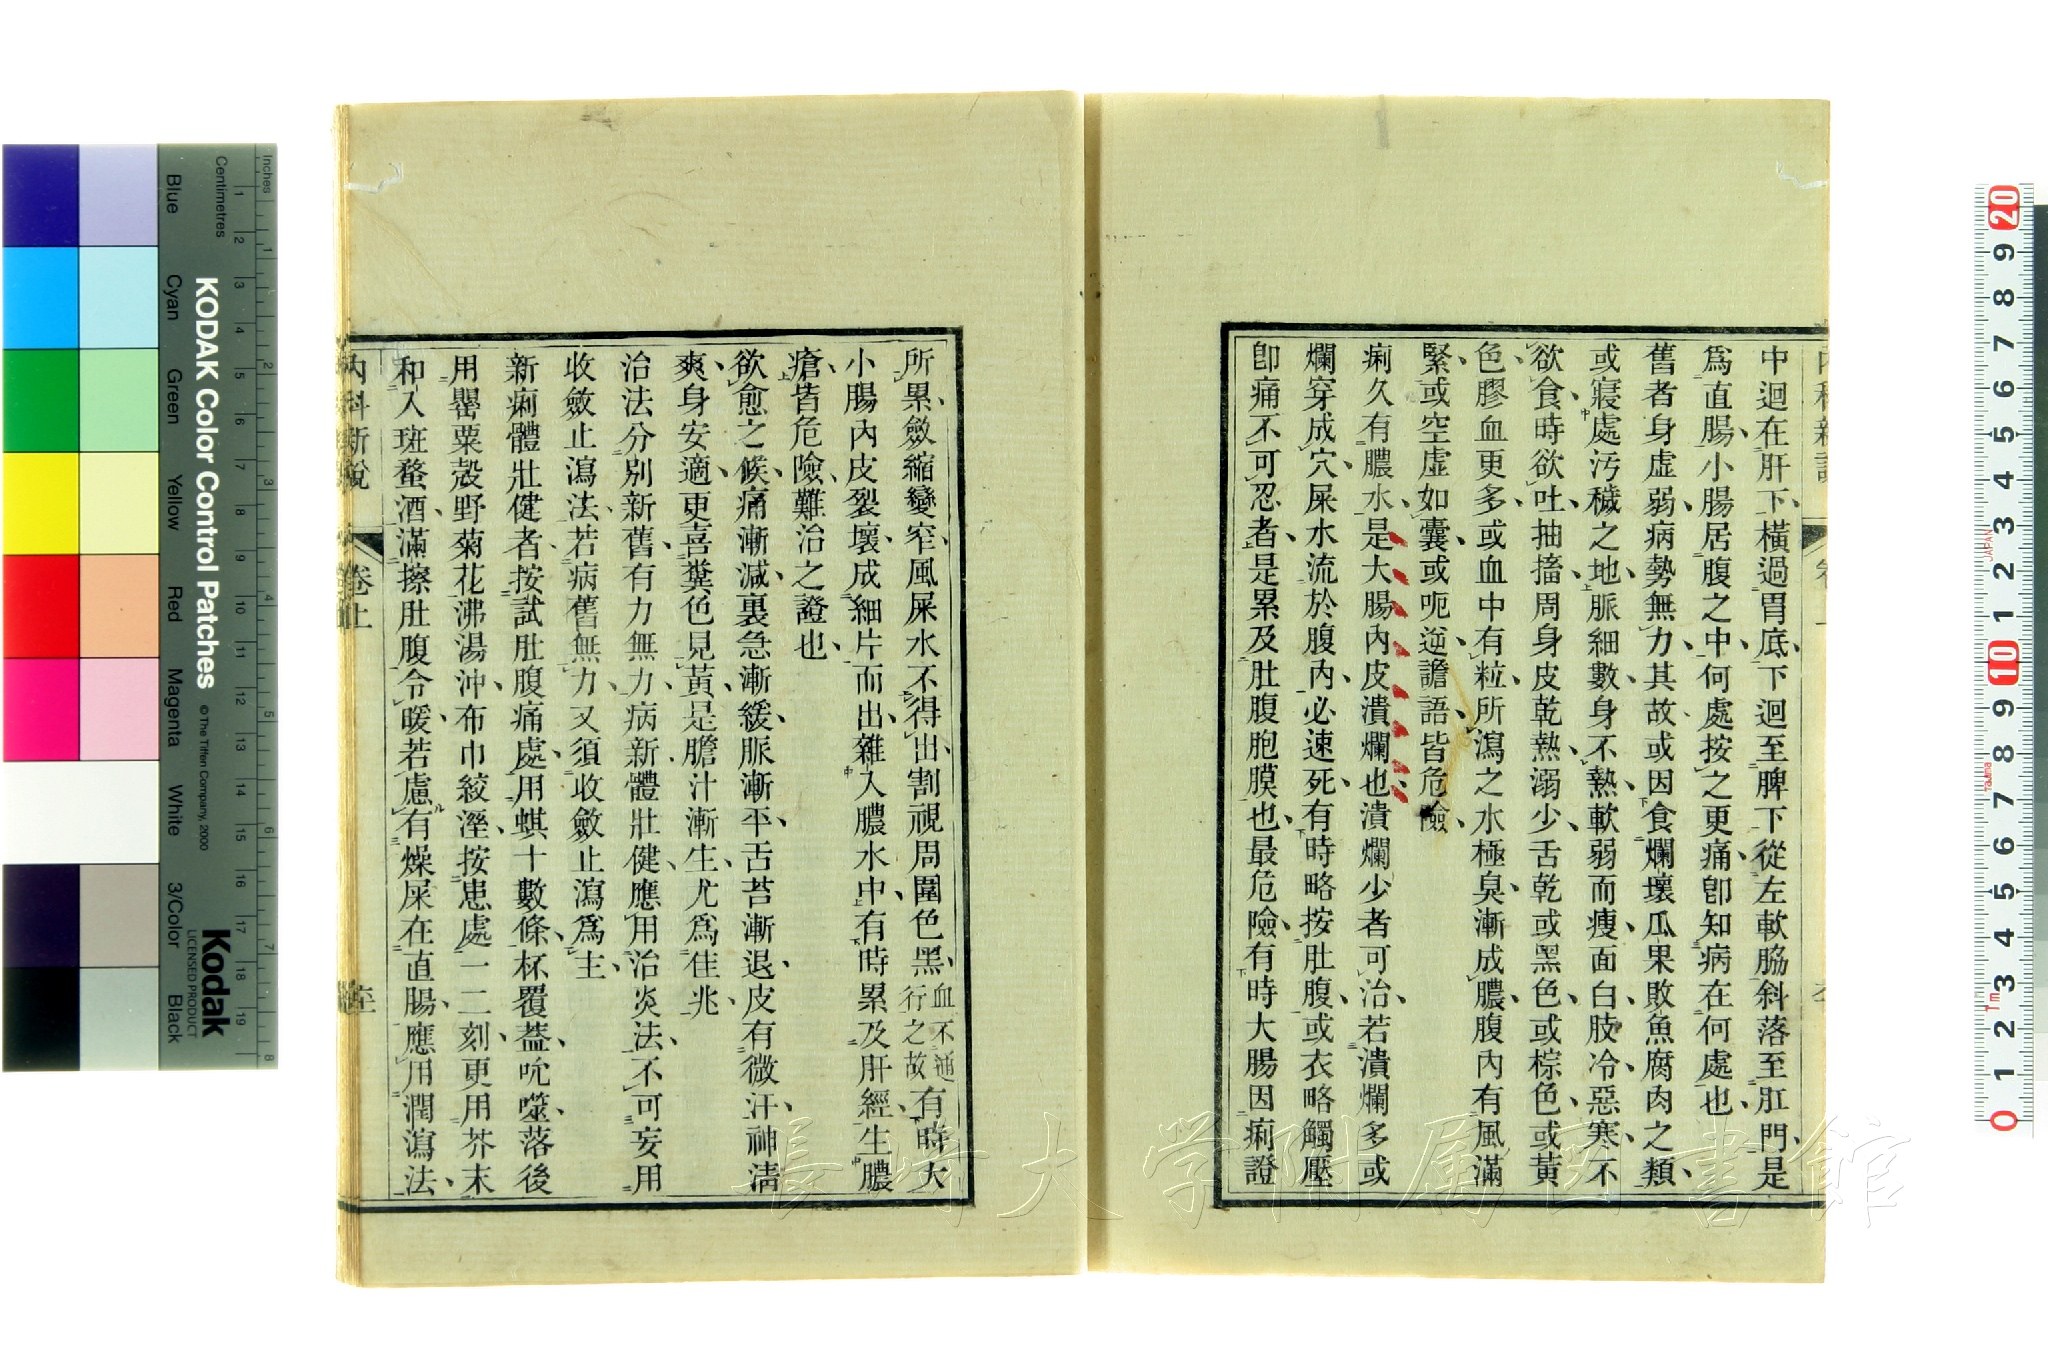 中迴在肝下橫過胃底下迴至脾下從左軟脇斜落至肛門是
爲直腸小腸居腹之中何處按之更痛卽知病在何處也
舊者身虛弱病勢無力其故或因食爛壞瓜果敗魚腐肉之類
或寢處汚穢之地脈細數身不熱軟弱而瘦面白肢冷惡寒不
欲食時欲吐抽搐周身皮乾熱溺少舌乾或黑色或棕色或黃
色膠血更多或血中有粒所瀉之水極臭漸成膿腹內有風滿
緊或空虛如囊或呃逆譫語皆危險
痢久有膿水是大腸內皮潰爛也潰爛少者可治若潰爛多或
爛穿成穴屎水流於腹內必速死有時略按肚腹或衣略觸壓
卽痛不可忍者是累及肚腹胞膜也最危險有時大腸因痢證
所累斂縮變窄風屎水不得出割視周圍色黑血不通行之故有時大
小腸內皮裂壞成細片而出雜入膿水中有時累及肝經生膿
瘡皆危險難治之證也
欲愈之候痛漸減裏急漸緩脈漸平舌苔漸退皮有微汗神清
爽身安適更喜糞色見黃是膽汁漸生尤爲佳兆
治法分別新舊有力無力病新體壯健應用治炎法不可妄用
收斂止瀉法若病舊無力又須收斂止瀉爲主
新痢體壯健者按試肚腹痛處用蜞十數條杯覆葢吮噬落後
用罌粟殼野菊花沸湯沖布巾絞溼按患處一二刻更用芥末
和入斑蝥酒滿擦肚腹令暖若慮有燥屎在直腸應用潤瀉法
內科新說
卷上
KODAK Color Control Patches
© The Tiffen Company, 2000
Kodak
LICENSED PRODUCT
Inches
Centimetres
Blue
Cyan
Green
Yellow
Red
Magenta
White
3/Color
Black
長崎大学附属図書館